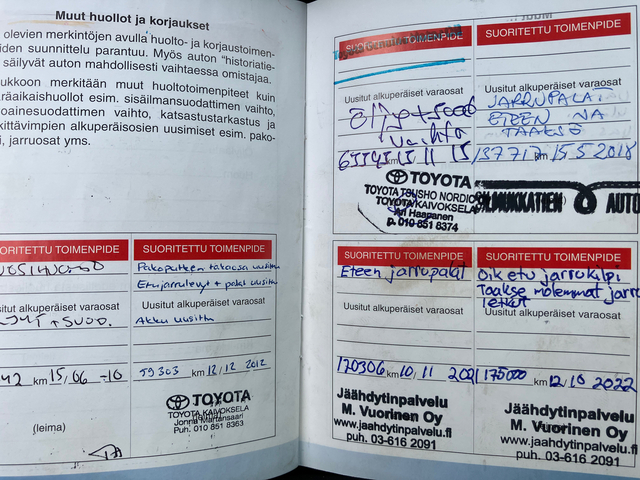 Muut huollot ja korjaukset
olevien merkintöjen avulla huolto- ja korjaustoimen-
iden suunnittelu parantuu. Myös auton "historiatie-
säilyvät auton mahdollisesti vaihtaessa omistajaa.
ukkoon merkitään muut huoltotoimenpiteet kuin
räaikaishuollot esim. sisäilmansuodattimen vaihto,
oainesuodattimen vaihto, katsastustarkastus ja
kittävimpien alkuperäisosien uusimiset esim. pako-
i, jarruosat yms.
SUORITETTU TOIMENPIDE
usitut alkuperäiset varaosat
km 15/06 -10
(leima)
SUORITETTU TOIMENPIDE
Pakoputken takaosa uusittu
Etujarrulevyt + palat uusittu
Uusitut alkuperäiset varaosat
Akku uusittu
59303 km 13/12 2012
TOYOTA
TOYOTA KAIVOKSELA
(leima)
Jonna Martansaari
Puh. 010 851 8363
SUORITETTU TOIMENPIDE
Uusitut alkuperäiset varaosat
Öljy + suod
vaihto
km 11 15
TOYOTA
TOYOTA TSUSHO NORDIC
TOYOTA KAIVOKSELA
Ari Haapanen
p. 010 851 8374
SUORITETTU TOIMENPIDE
Uusitut alkuperäiset varaosat
JARRUPALAT
ETEEN JA
TAAKSE
137717 km 15.5 2018
SILMUKKATIEN AUTO
SUORITETTU TOIMENPIDE
Eteen jarrupalat
Uusitut alkuperäiset varaosat
170306 km 10/11 2021
Jäähdytinpalvelu
M. Vuorinen Oy
www.jaahdytinpalvelu.fi
puh. 03-616 2091
SUORITETTU TOIMENPIDE
Oik etu jarrukilpi
Taakse molemmat jarru
letkut
Uusitut alkuperäiset varaosat
175000 km 12/10 2022
Jäähdytinpalvelu
M. Vuorinen Oy
www.jaahdytinpalvelu.fi
puh. 03-616 2091